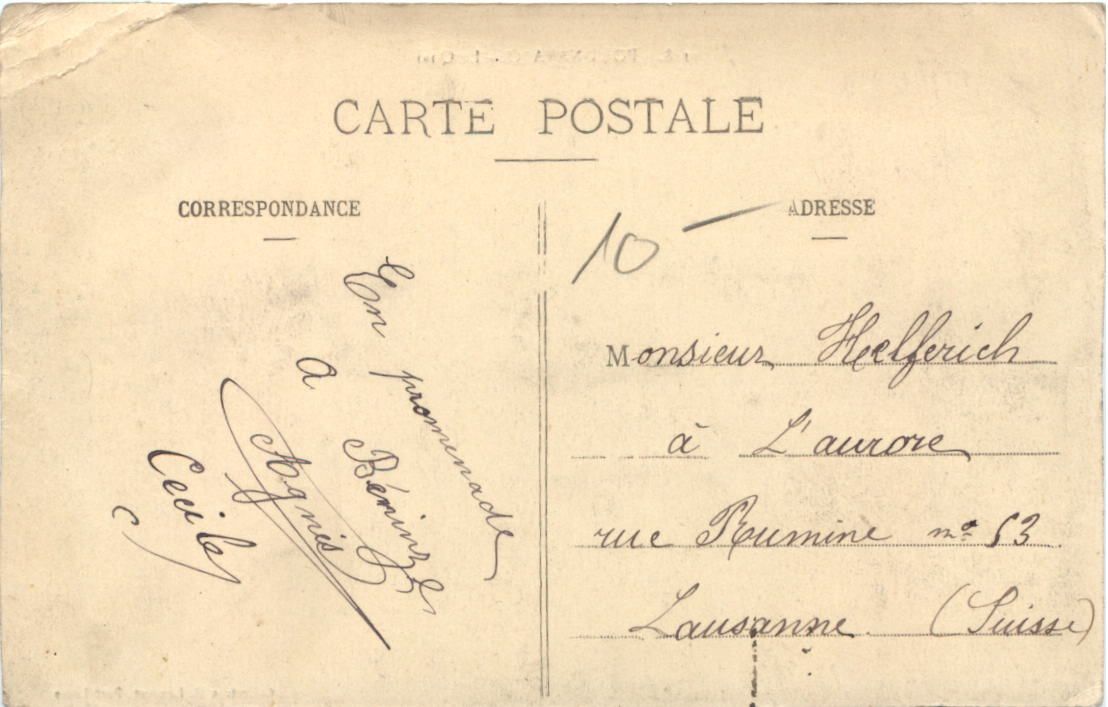 CARTE POSTALE
CORRESPONDANCE
ADRESSE
10 —
En promenade
à
Agnès
Cecile
Monsieur Helferich
à L'aurore
rue Rumine nº 53
Lausanne. (Suisse)